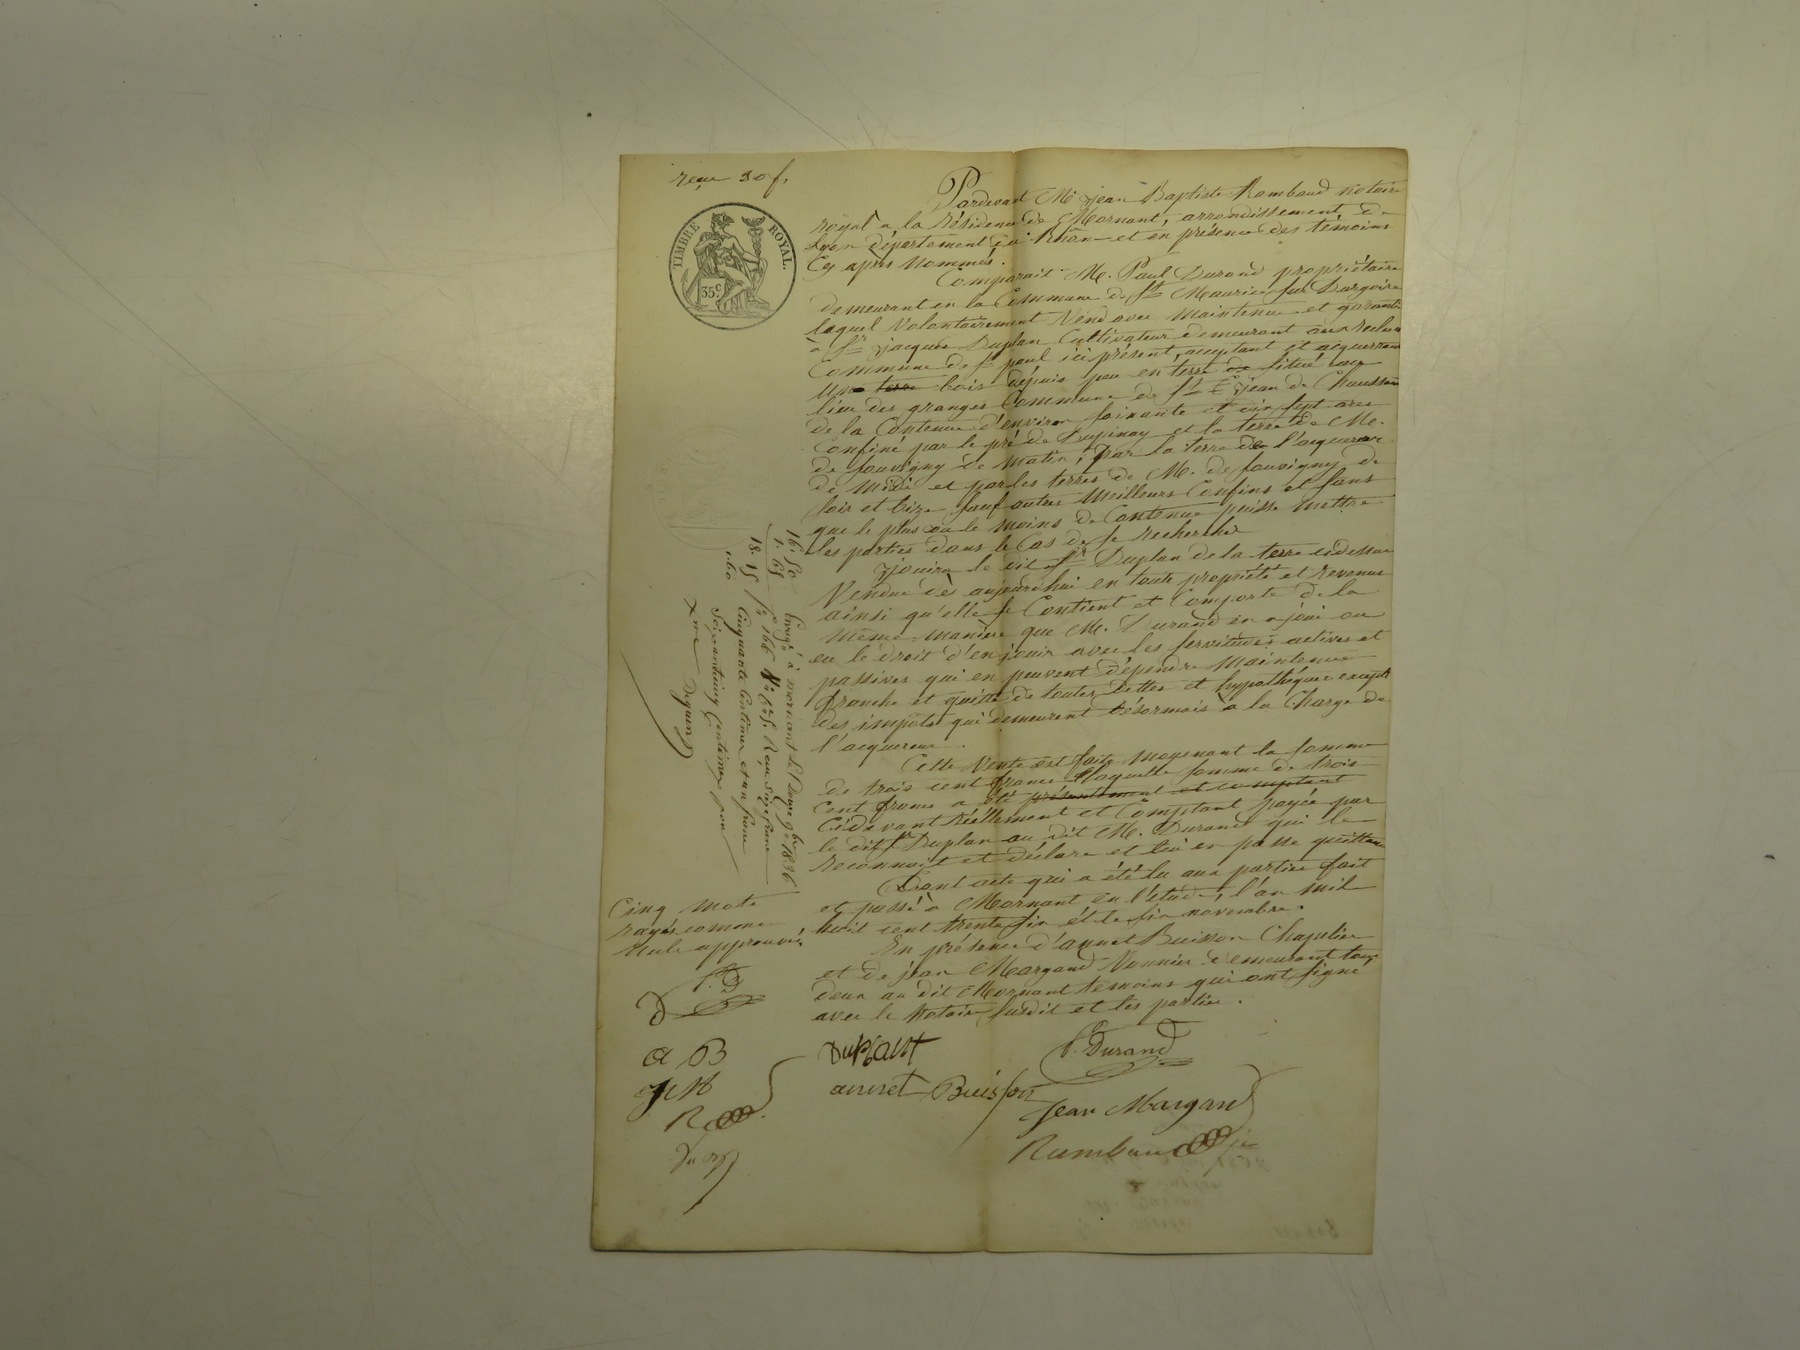 reçu 30 f.
TIMBRE ROYAL.
35 c
Pardevant Me jean Baptiste Rambaud notaire
royal a la résidence de Mornant, arrondissement de
Lyon département du Rhône et en présence des témoins
Cy après Nommés.
Comparait M. Paul Durand propriétaire
demeurant en la Commune de St Maurice sur Dargoire
lequel Volontairement Vend avec Maintenue et garantie
a Sr jacques Duplan Cultivateur demeurant aux
Commune de St paul ici présent, acceptant et acquerreur
un terre bois depuis peu en terre situé au
lieu des granges Commune de St jean de Chaussan
de la Contenue d'environ soixante et dix sept ares
Confiné par le pré de Dupinay et la terre de M.
de jouvigny de matin, par la terre de l'acquereur
de midi et par les terres de M. de jouvigny de
soir et bize sauf autres Meilleurs Confins et sans
que le plus ou le moins de Contenue puisse mettre
les parties dans le Cas de se rechercher
Jouira le dit Sr Duplan de la terre cidessus
Vendue dès aujourdhui en toute propriété et revenus
ainsi qu'elle se Contient et Comporte de la
même manière que M. Durand en a joui ou
eu le droit d'en jouir avec les servitudes actives et
passives qui en peuvent dépendre Maintenue
franche et quitte de toutes dettes et hypothéques excepté
des impots qui demeurent désormais a la Charge de
l'acquereur.
Cette Vente est faite moyenant la somme
de trois cent francs laquelle somme de trois
cent francs a été présentement et comptant
Cidevant réellement et Comptant payée par
le dit Sr Duplan au dit M. Durand qui le
reconnait et déclare et lui en passe quittance
Dont acte qui a été lu aux parties fait
et passé a Mornant en l'étude, l'an mil
huit cent trente six et le six novembre.
En présence d'annet Buisson Chapelier
et de jean Margand Vannier demeurant tous
deux au dit Mornant temoins qui ont signé
avec le Notaire susdit et les parties.
Enregé à mornant le Douze 9bre 1836
fo 166 Reçu seize francs
Cinquante Centimes et un franc
Soixante cinq Centimes pour
16. 50
1. 65
18. 15
Cinq mots
rayés comme
Nuls approuvés
P. D
D
a B
j M
R
Duplant
P. Durand
annet Buisson
Jean Margand
Rambaud